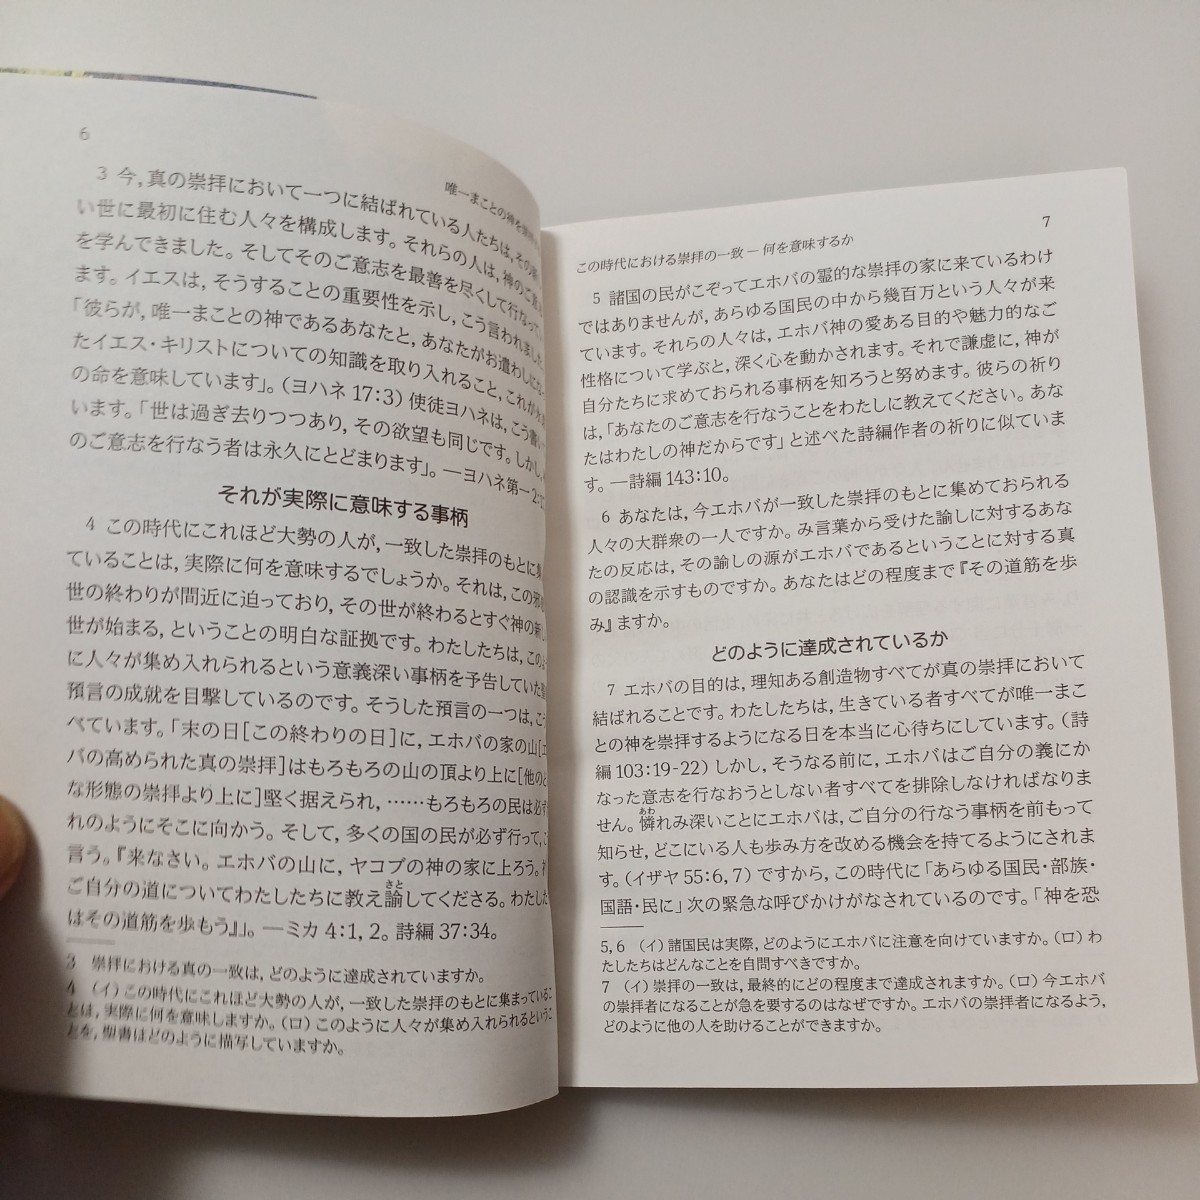 6
唯一まことの神を
3 今，真の崇拝において一つに結ばれている人たちは，その新し
い世に最初に住む人々を構成します。それらの人は，神のご意志
を学んできました。そしてそのご意志を最善を尽くして行なってい
ます。イエスは，そうすることの重要性を示し，こう言われました。
「彼らが，唯一まことの神であるあなたと，あなたがお遣わしになっ
たイエス・キリストについての知識を取り入れること，これが永遠
の命を意味しています」。（ヨハネ 17：3）使徒ヨハネは，こう書いて
います。「世は過ぎ去りつつあり，その欲望も同じです。しかし，
のご意志を行なう者は永久にとどまります」。―ヨハネ第一 2：17
それが実際に意味する事柄
4 この時代にこれほど大勢の人が，一致した崇拝のもとに集
ていることは，実際に何を意味するでしょうか。それは，この邪悪
世の終わりが間近に迫っており，その世が終わるとすぐ神の新しい
世が始まる，ということの明白な証拠です。わたしたちは，このよ
に人々が集め入れられるという意義深い事柄を予告していた聖
預言の成就を目撃しているのです。そうした預言の一つは，こう
べています。「末の日［この終わりの日］に，エホバの家の山［エ
バの高められた真の崇拝］はもろもろの山の頂より上に［他のど
な形態の崇拝より上に］堅く据えられ，……もろもろの民は必ず
れのようにそこに向かう。そして，多くの国の民が必ず行って，こ
言う。『来なさい。エホバの山に，ヤコブの神の家に上ろう。
ご自分の道についてわたしたちに教え諭してくださる。わたした
さと
はその道筋を歩もう』」。―ミカ 4：1，2。詩編 37：34。
3 崇拝における真の一致は，どのように達成されていますか。
4 （イ）この時代にこれほど大勢の人が，一致した崇拝のもとに集まっているこ
とは，実際に何を意味しますか。（ロ）このように人々が集め入れられるというこ
とを，聖書はどのように描写していますか。
この時代における崇拝の一致 ― 何を意味するか
7
5 諸国の民がこぞってエホバの霊的な崇拝の家に来ているわけ
ではありませんが，あらゆる国民の中から幾百万という人々が来
ています。それらの人々は，エホバ神の愛ある目的や魅力的なご
性格について学ぶと，深く心を動かされます。それで謙虚に，神が
自分たちに求めておられる事柄を知ろうと努めます。彼らの祈り
は，「あなたのご意志を行なうことをわたしに教えてください。あな
たはわたしの神だからです」と述べた詩編作者の祈りに似ていま
す。―詩編 143：10。
6 あなたは，今エホバが一致した崇拝のもとに集めておられる
人々の大群衆の一人ですか。み言葉から受けた諭しに対するあな
たの反応は，その諭しの源がエホバであるということに対する真
の認識を示すものですか。あなたはどの程度まで『その道筋を歩
み』ますか。
どのように達成されているか
7 エホバの目的は，理知ある創造物すべてが真の崇拝において
結ばれることです。わたしたちは，生きている者すべてが唯一まこ
との神を崇拝するようになる日を本当に心待ちにしています。（詩
編 103：19‐22）しかし，そうなる前に，エホバはご自分の義にか
なった意志を行なおうとしない者すべてを排除しなければなりま
せん。憐れみ深いことにエホバは，ご自分の行なう事柄を前もって
あわ
知らせ，どこにいる人も歩み方を改める機会を持てるようにされま
す。（イザヤ 55：6，7）ですから，この時代に「あらゆる国民・部族・
国語・民に」次の緊急な呼びかけがなされているのです。「神を恐
5，6 （イ）諸国民は実際，どのようにエホバに注意を向けていますか。（ロ）わ
たしたちはどんなことを自問すべきですか。
7 （イ）崇拝の一致は，最終的にどの程度まで達成されますか。（ロ）今エホバ
の崇拝者になることが急を要するのはなぜですか。エホバの崇拝者になるよう，
どのように他の人を助けることができますか。